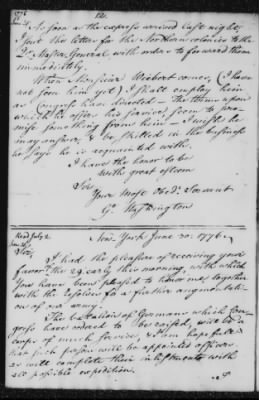 121.
As soon as the express arrived last night,
I sent the letter for the Northern colonies to the
Qr. Master General with orders to forward them
immediately.
When Monsieur Wiebert comes, (I have
not seen him yet) I shall employ him
as Congress have directed — The terms upon
which he offers his service, seem to pro-
mise something from him — I wish he
may answer, & be skilled in the business
he says he is acquainted with.
I have the honor to be
with great esteem
Sir
Your Most Obedt. Servant
Go. Washington
Read July 2.
New York June 30. 1776.
Sir,
I had the pleasure of receiving your
favor of the 29. early this morning, with which
you have been pleased to honor me, together
with the resolves for a further augmentation
of our army.
The battalion of Germans which Con-
gress have ordered to be raised, will be a
corps of much service, & I am hopeful
that such persons will be appointed officers
as will complete their inlistments with
all possible expedition.